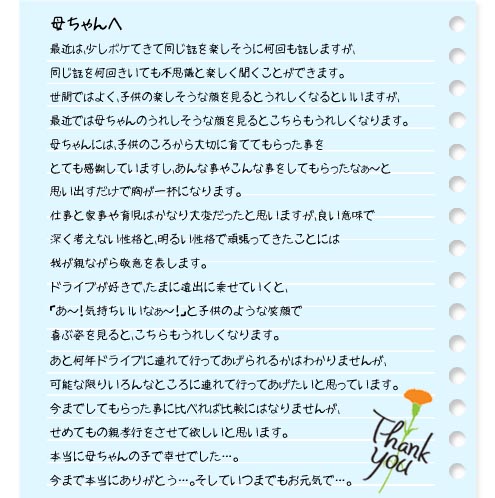 母ちゃんへ
最近は、少しボケてきて同じ話を楽しそうに何回も話しますが、
同じ話を何回きいても不思議と楽しく聞くことができます。
世間ではよく、子供の楽しそうな顔を見るとうれしくなるといいますが、
最近では母ちゃんのうれしそうな顔を見るとこちらもうれしくなります。
母ちゃんには、子供のころから大切に育ててもらった事を
とても感謝していますし、あんな事やこんな事をしてもらったなぁ〜と
思い出すだけで胸が一杯になります。
仕事と家事や育児はかなり大変だったと思いますが、良い意味で
深く考えない性格と、明るい性格で頑張ってきたことには
我が親ながら敬意を表します。
ドライブが好きで、たまに遠出に乗せていくと、
『あ〜!気持ちいいなぁ〜!』と子供のような笑顔で
喜ぶ姿を見ると、こちらもうれしくなります。
あと何年ドライブに連れて行ってあげられるかはわかりませんが、
可能な限りいろんなところに連れて行ってあげたいと思っています。
今までしてもらった事に比べれば比較にはなりませんが、
せめてもの親孝行をさせて欲しいと思います。
本当に母ちゃんの子で幸せでした…。
今まで本当にありがとう…。そしていつまでもお元気で…。
Thank
you